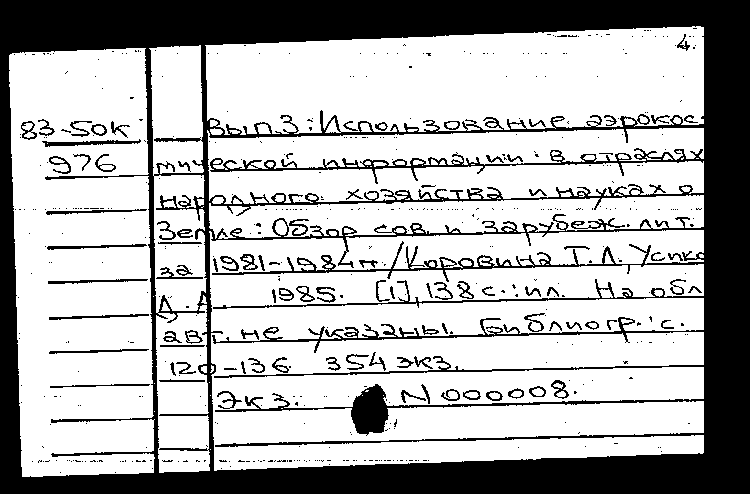 4.
83-50к Вып.3: Использование аэрокос-
976 мической информации в отраслях
народного хозяйства и науках о
Земле: Обзор сов. и зарубеж. лит.
за 1981-1984 гг. /Коровина Т.Л.,
1985. [1], 138 с.: ил. На обл.
авт. не указаны. Библиогр.: с.
120-136. 354 экз.
Экз. N 000008.